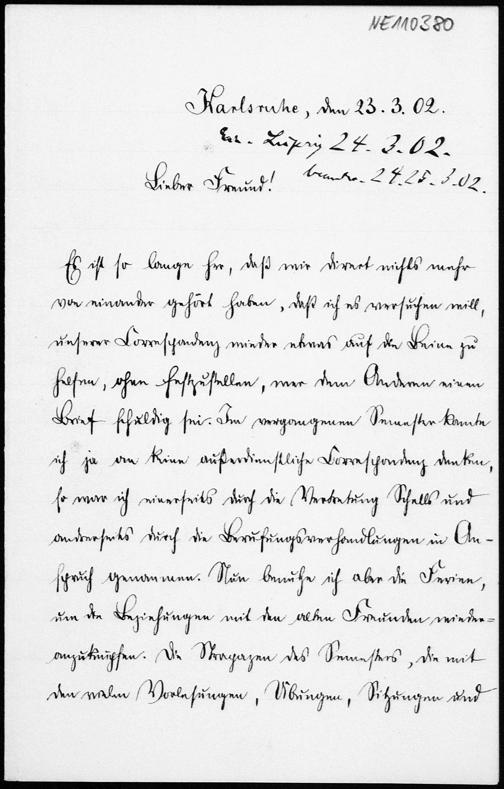 NE110380
Karlsruhe, den 23.3.02.
Leipzig 24.3.02.
beantw. 24.25.3.02.
Lieber Freund!
Es ist so lange her, daß wir direct nichts mehr
von einander gehört haben, daß ich es versuchen will,
unserer Correspondenz wieder etwas auf die Beine zu
helfen, ohne festzustellen, wer dem Anderen einen
Brief schuldig sei. Im vergangenen Semester konnte
ich ja an keine außerdienstliche Correspondenz denken,
so war ich einerseits durch die Vertretung Schells und
andrerseits durch die Berufungsverhandlungen in An-
spruch genommen. Nun benutze ich aber die Ferien,
um die Beziehungen mit den alten Freunden wieder=
anzuknüpfen. Die Strapazen des Semesters, die mit
den vielen Vorlesungen, Übungen, Sitzungen und